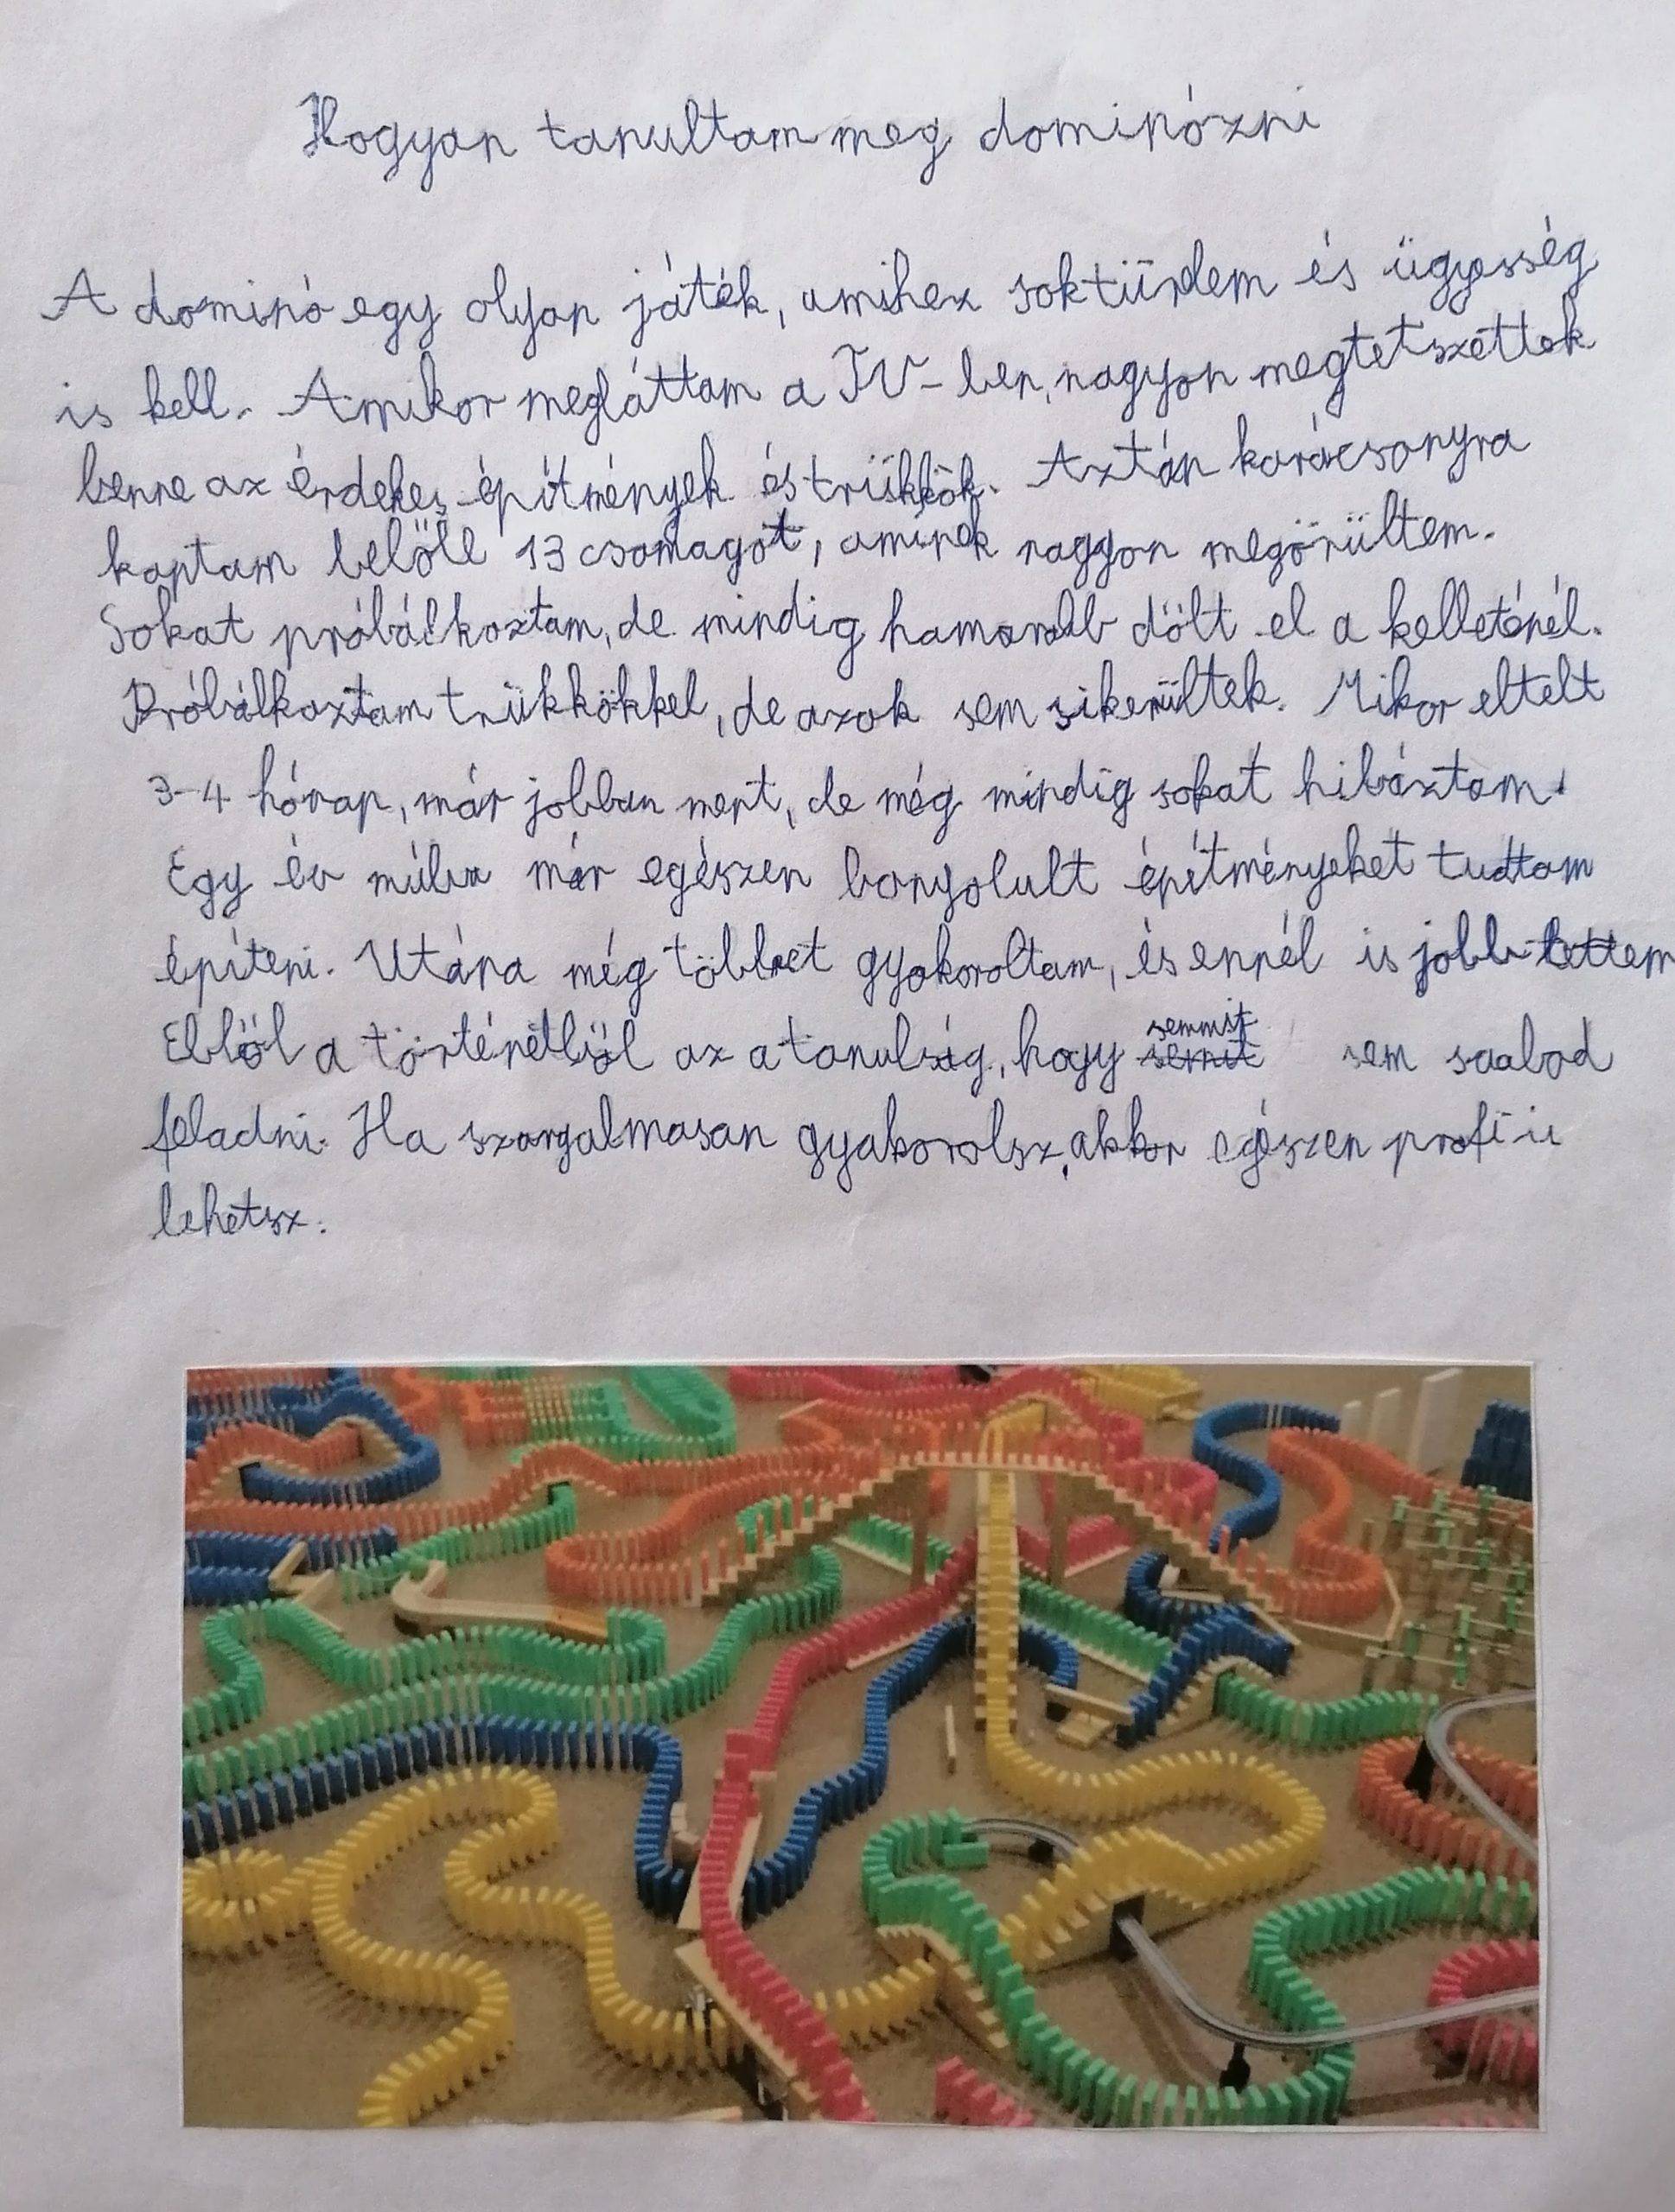 Hogyan tanultam meg dominózni
A dominó egy olyan játék, amihez sok türelem és ügyesség
is kell. Amikor megláttam a TV-ben, nagyon megtetszettek
benne az érdekes építmények és trükkök. Aztán karácsonyra
kaptam belőle 13 csomagot, aminek nagyon megörültem.
Sokat próbálkoztam, de mindig hamarabb dőlt el a kelleténél.
Próbálkoztam trükkökkel, de azok sem sikerültek. Mikor eltelt
3-4 hónap, már jobban ment, de még mindig sokat hibáztam.
Egy év múlva már egészen bonyolult építményeket tudtam
építeni. Utána még többet gyakoroltam, és ennél is jobb lettem
Ebből a történetből az a tanulság, hogy semmit sem saabad
feladni. Ha szorgalmasan gyakorolsz, akkor egészen profi is
lehetsz.